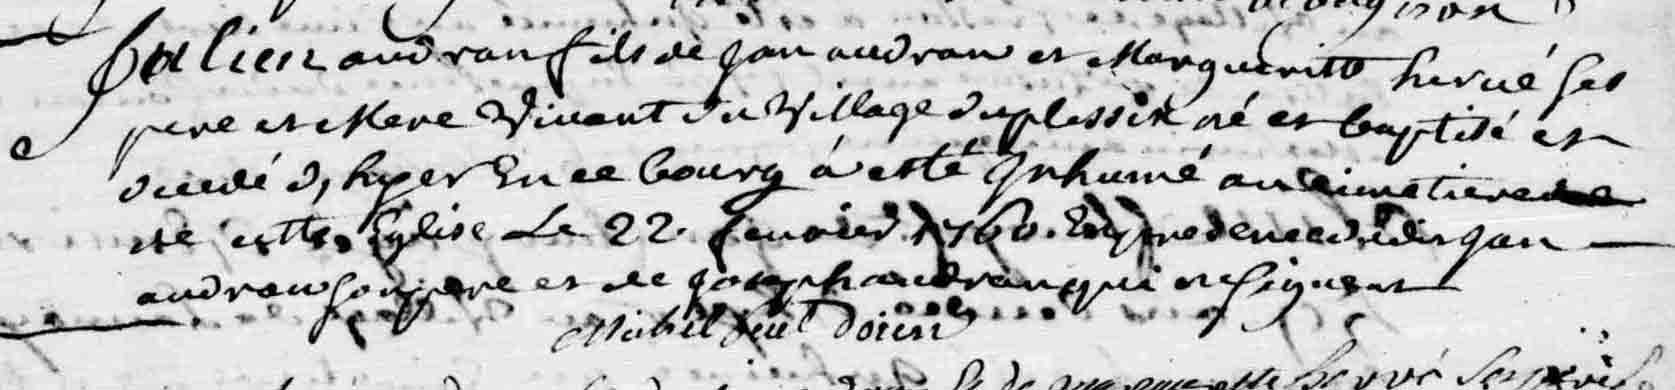 Julien audran fils de Jan audran et Margueritte hervé ses
pere et Mere Vivant du Village duplessix né et baptisé et
decedé d'hyer En ce bourg a esté Inhumé au cimetiere de
cette Eglise Le 22. Janvier 1760. En presence dudit Jan
audran son pere et de Joseph audran qui ne signent
Michel